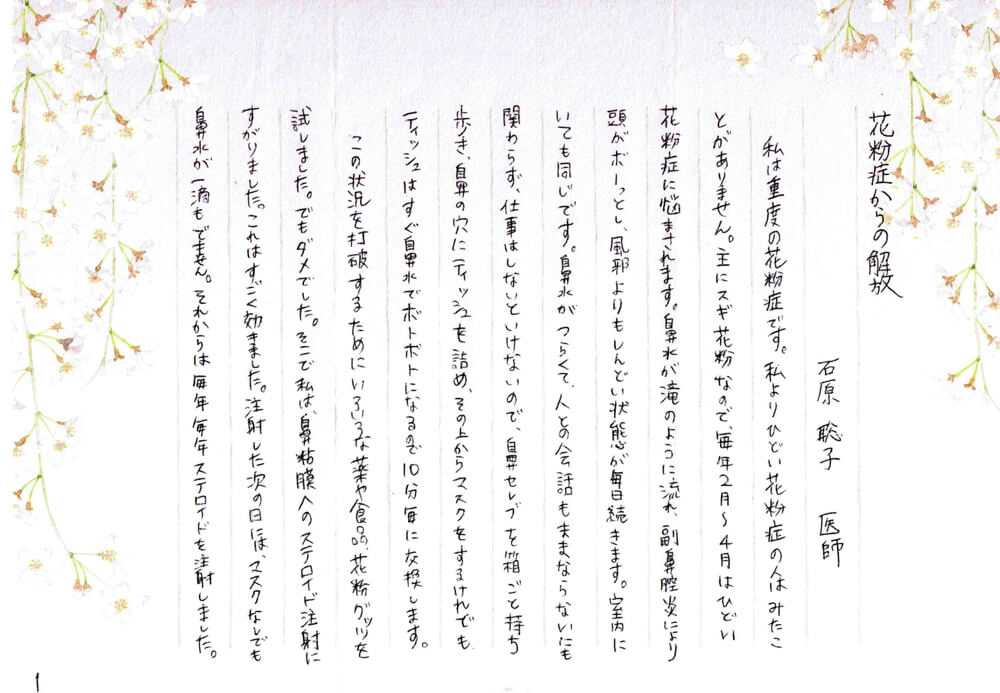 花粉症からの解放
石原 聡子 医師
私は重度の花粉症です。私よりひどい花粉症の人はみたこ
とがありません。主にスギ花粉なので、毎年2月~4月はひどい
花粉症に悩まされます。鼻水が滝のように流れ、副鼻腔炎により
頭がボーっとし、風邪よりもしんどい状態が毎日続きます。室内に
いても同じです。鼻水がつらくて、人との会話もままならないにも
関わらず、仕事はしないといけないので、鼻セレブを箱ごと持ち
歩き、鼻の穴にティッシュを詰め、その上からマスクをするけれども、
ティッシュはすぐ鼻水でボトボトになるので10分毎に交換します。
この状況を打破するためにいろいろな薬や食品、花粉グッツを
試しました。でもダメでした。そこで私は、鼻粘膜へのステロイド注射に
すがりました。これはすごく効きました。注射した次の日には、マスクなしでも
鼻水が一滴もでません。それからは毎年毎年ステロイドを注射しました。
1